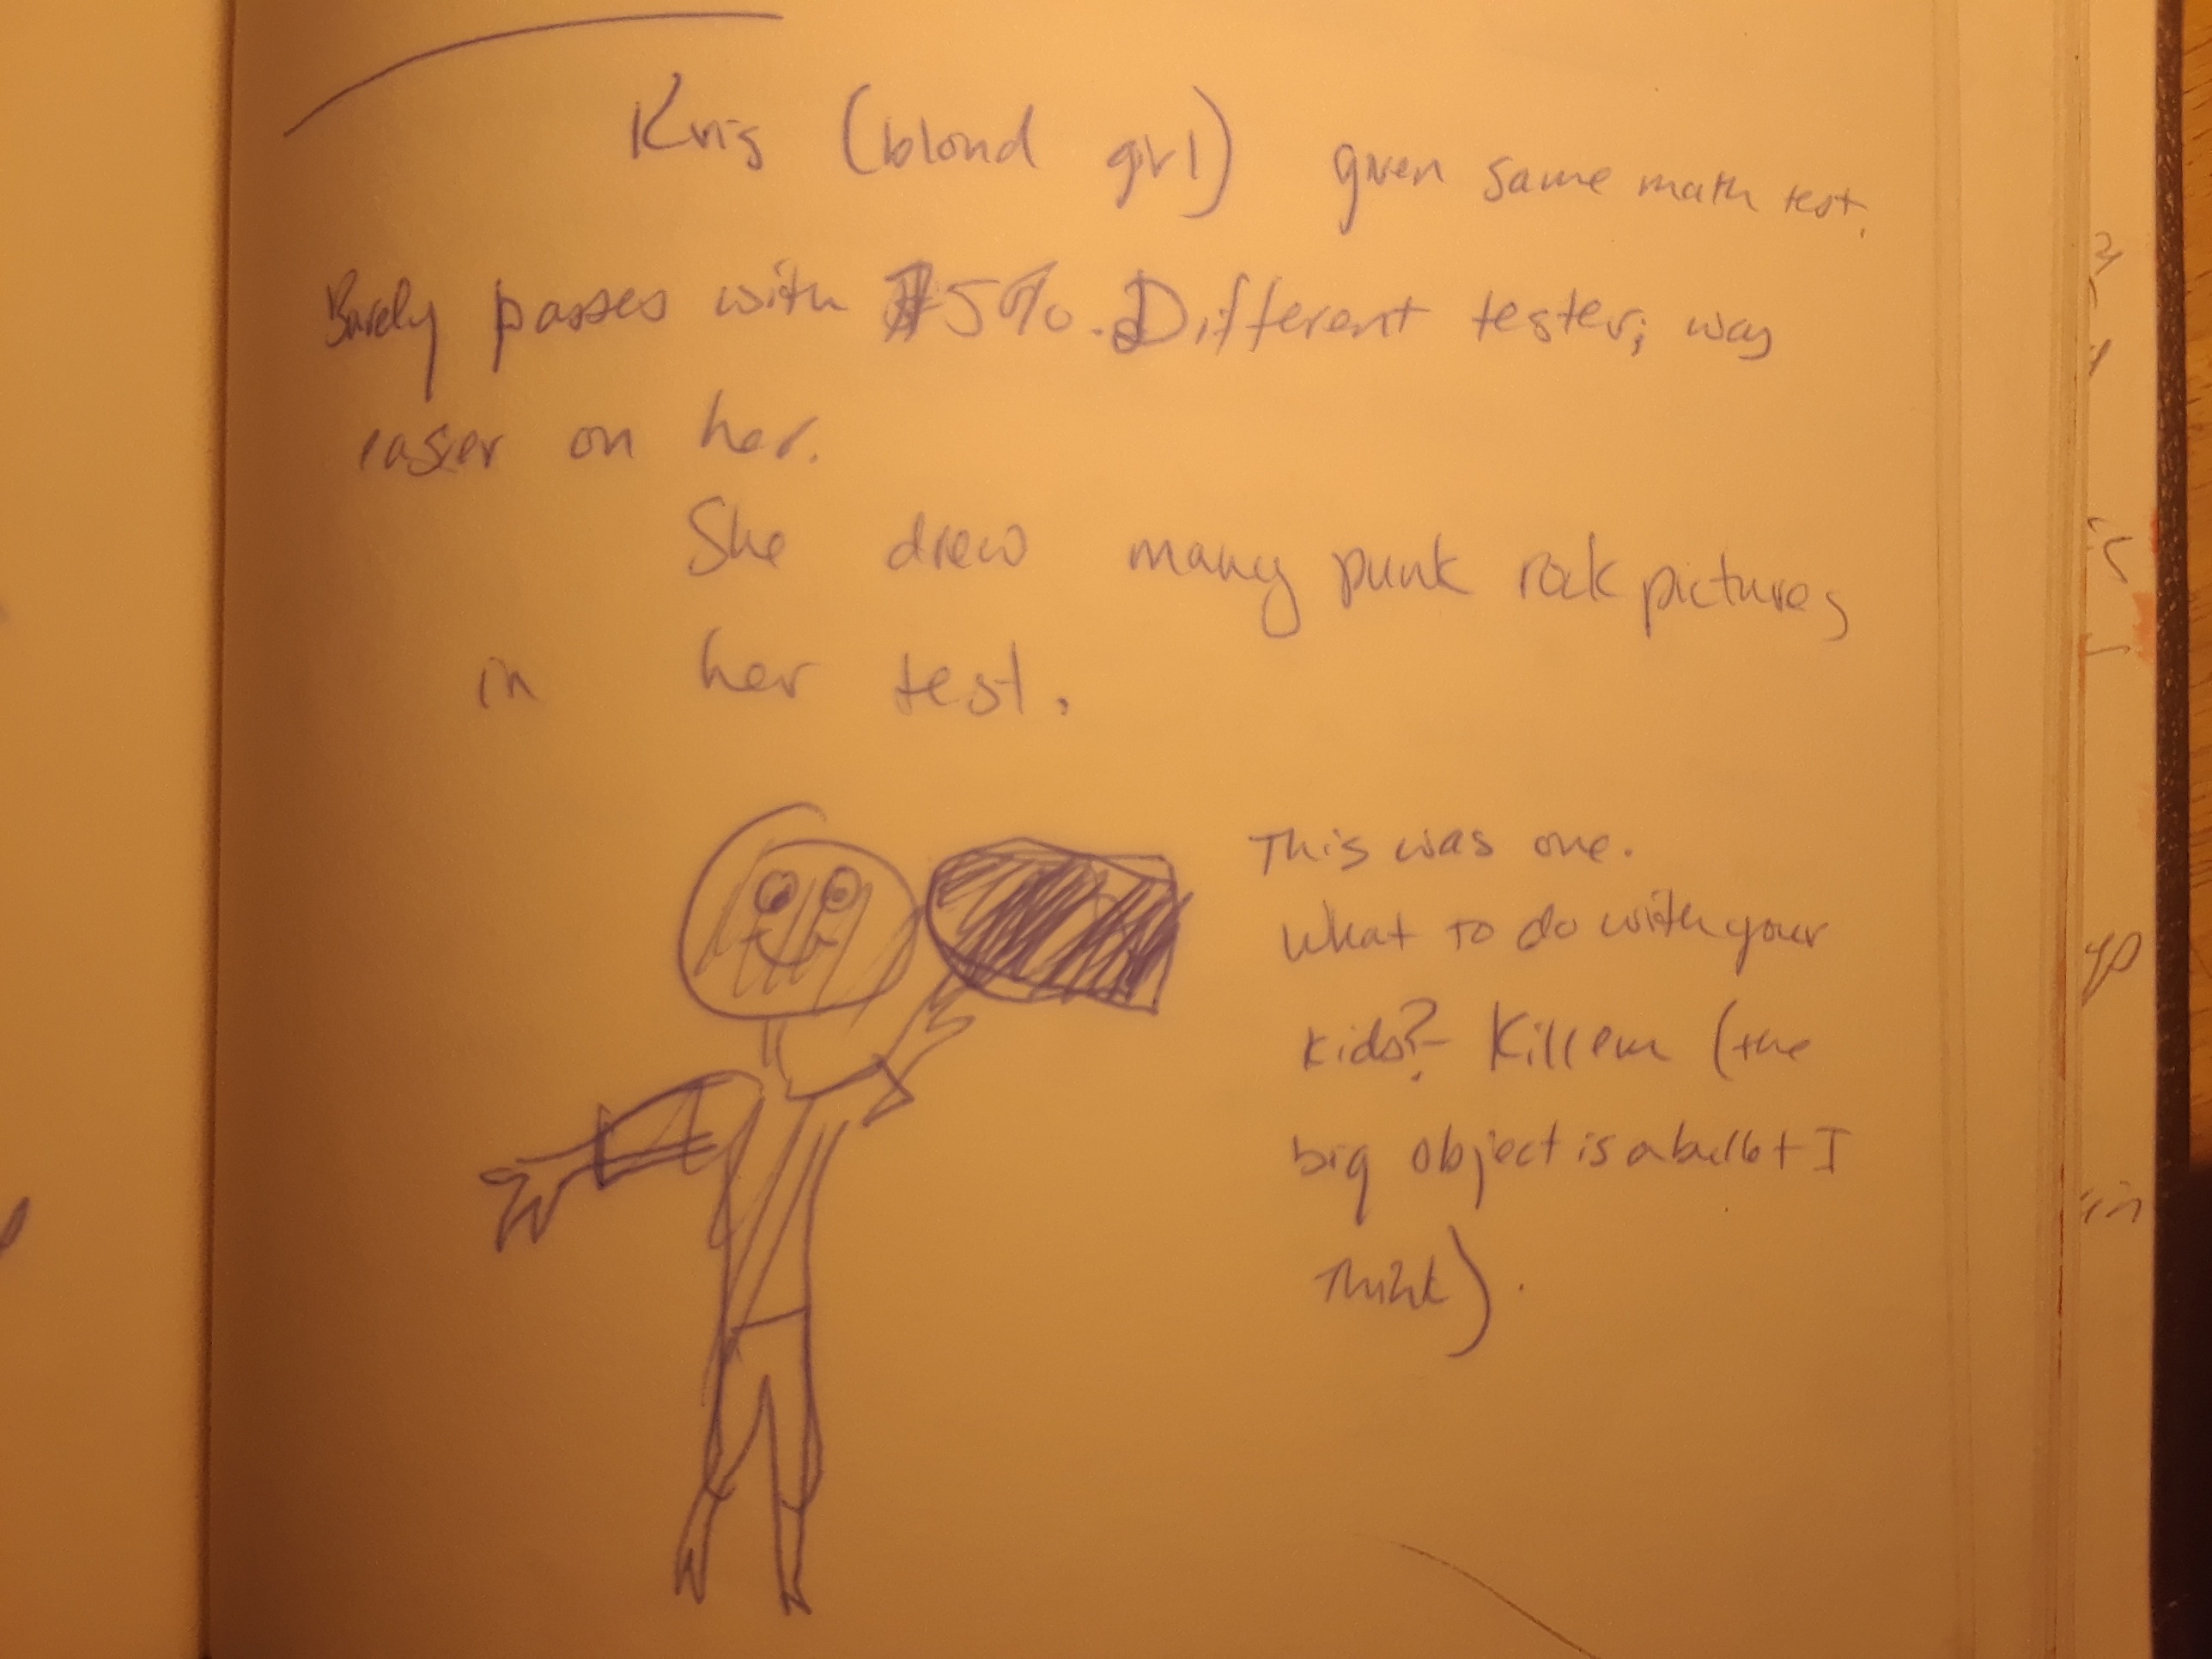 Kris (blond girl) given same math test.
Barely passes with 5%. Different tester, was
easier on her.
She drew many punk rock pictures
in her test.
This was one.
What to do with your
kids? Kill em (the
big object is a bullet I
think).